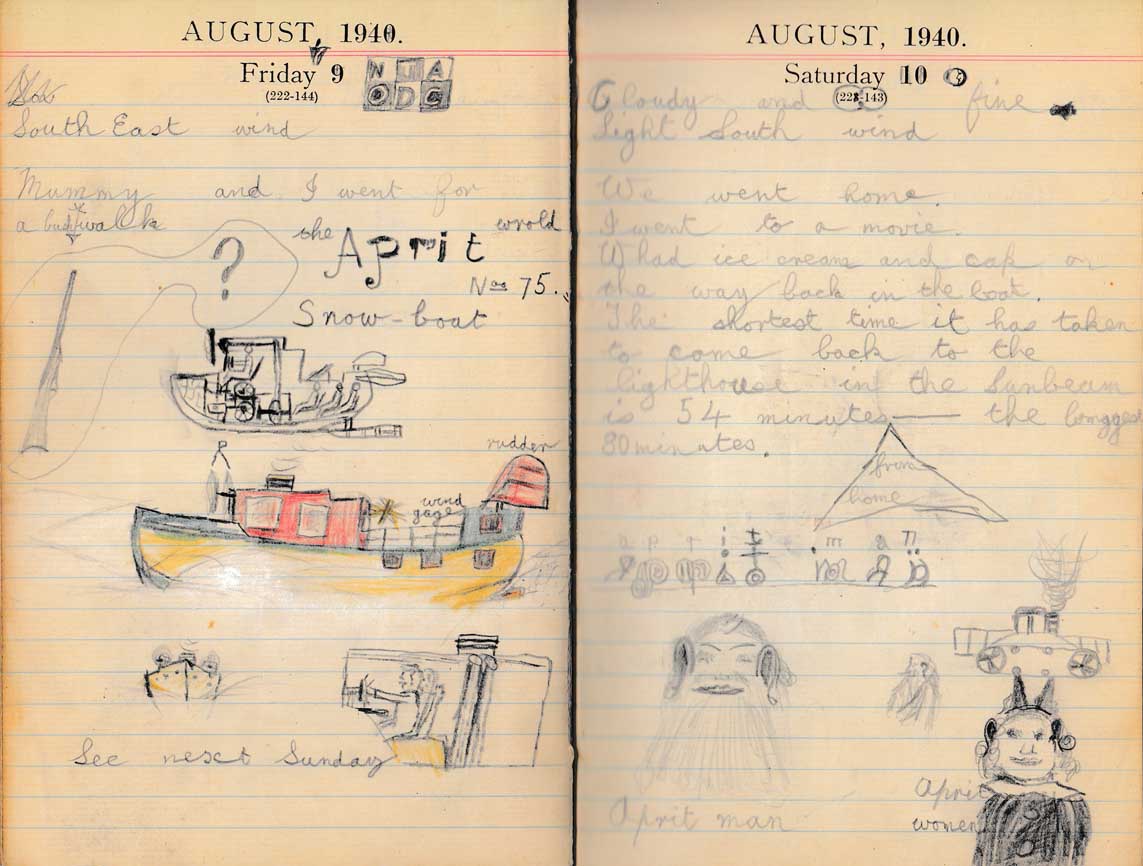 AUGUST, 1940.
Friday 9
(222-144)
N T A
O D G
South East wind
Mummy and I went for
a walk
?
the Aprit wrold
Nos 75.
Snow-boat
rudder
wind
gage
See nesct Sunday
AUGUST, 1940.
Saturday 10
(223-143)
Cloudy and fine
Light South wind
We went home.
I went to a movie.
W had ice cream and cak on
the way back in the boat.
The shortest time it has taken
to come back to the
lighthouse in the Sunbeam
is 54 minutes — the longgest
80 minutes.
from
home
a p r i t m a n
Aprit man
Aprit
women